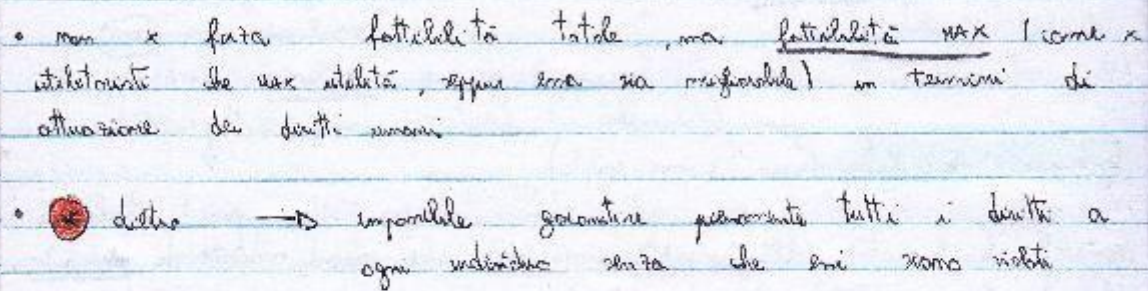 • non x forza fattibilità totale, ma fattibilità MAX (come x
utilitaristi che MAX utilità, seppur essa sia migliorabile) in termini di
attuazione dei diritti umani
• * → impossibile garantire pienamente tutti i diritti a
ogni individuo senza che essi siano violati